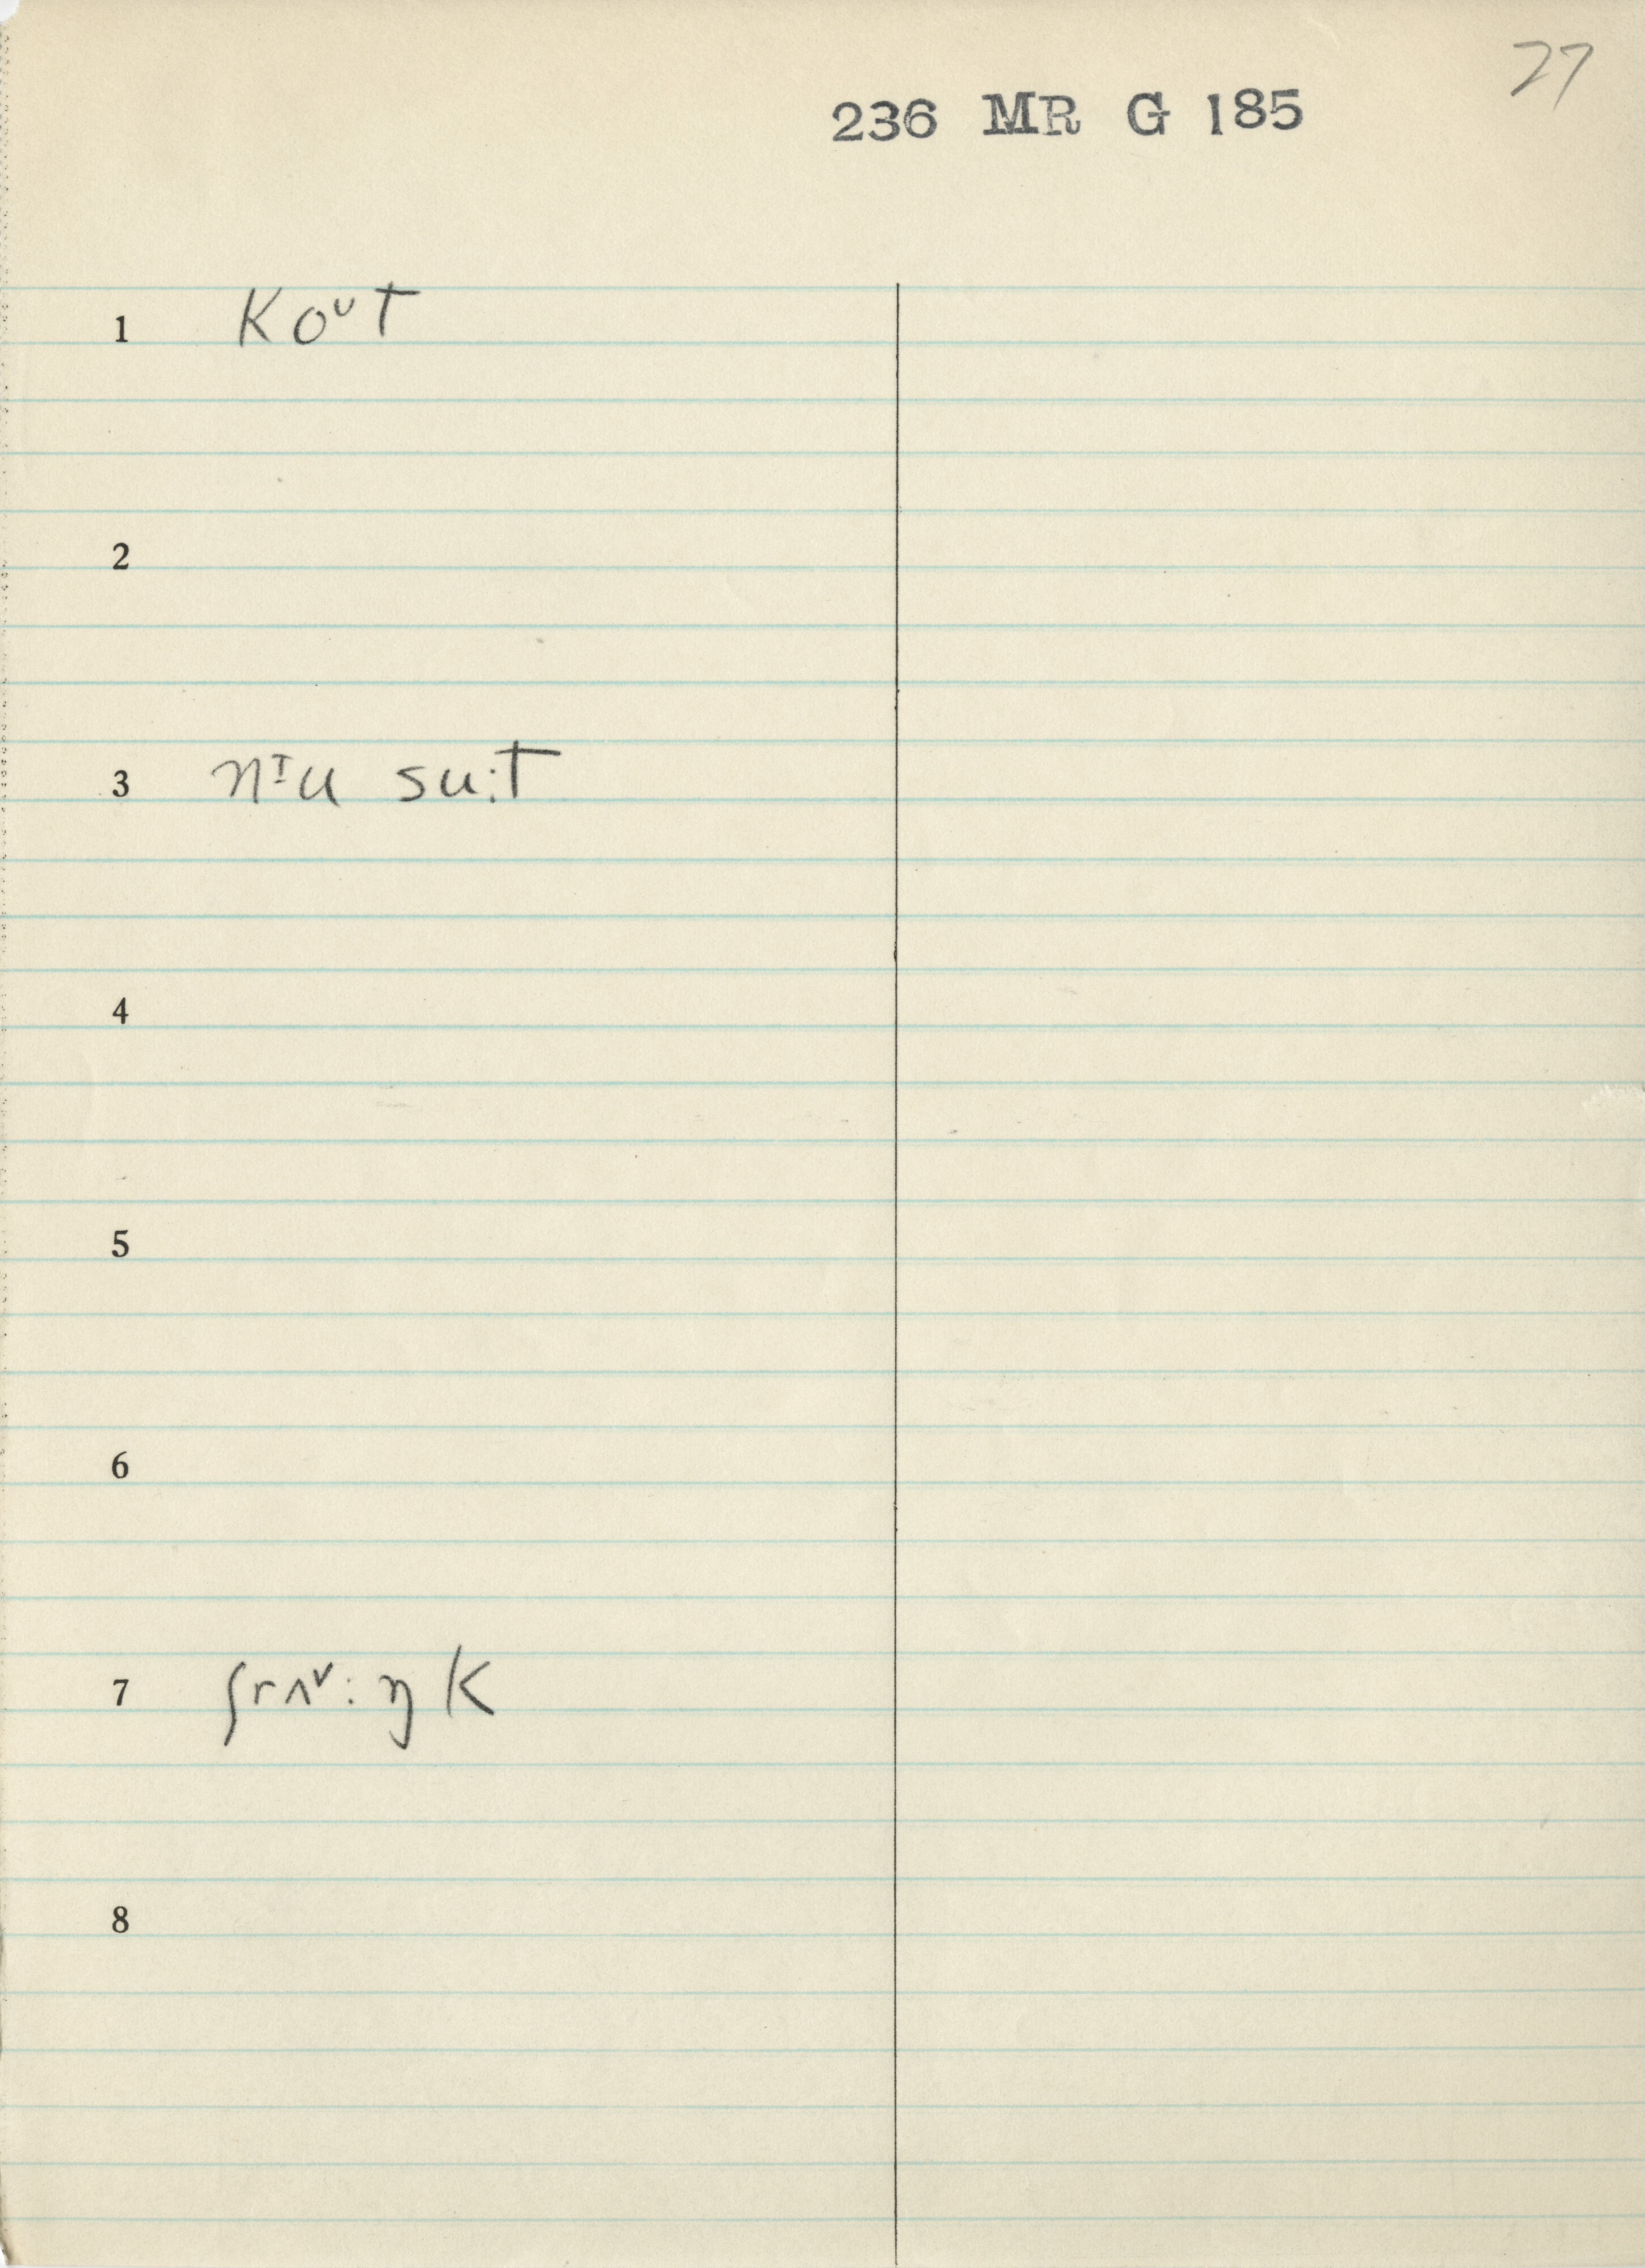 27
236 MR G 185
1 koᴜt
2
3 nᶦu su:t
4
5
6
7 ʃrʌᵛ:ŋk
8